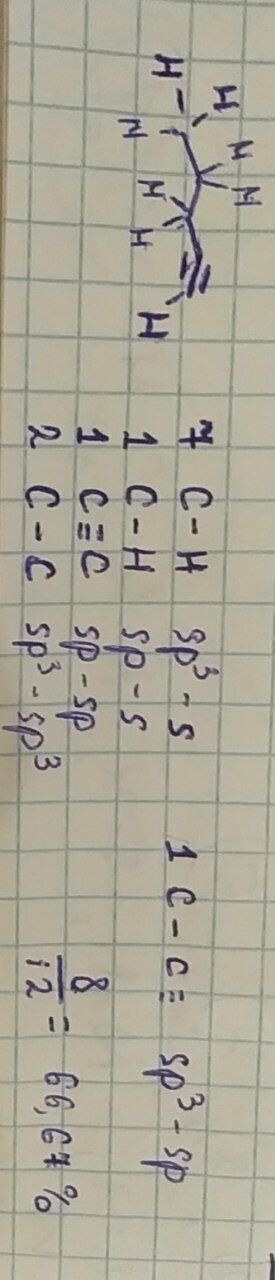 H H H
H H H
H H
7 C-H sp³-s 1 C-C≡ sp³-sp
1 C-H sp-s
1 C≡C sp-sp
2 C-C sp³-sp³
8/12 = 66,67%